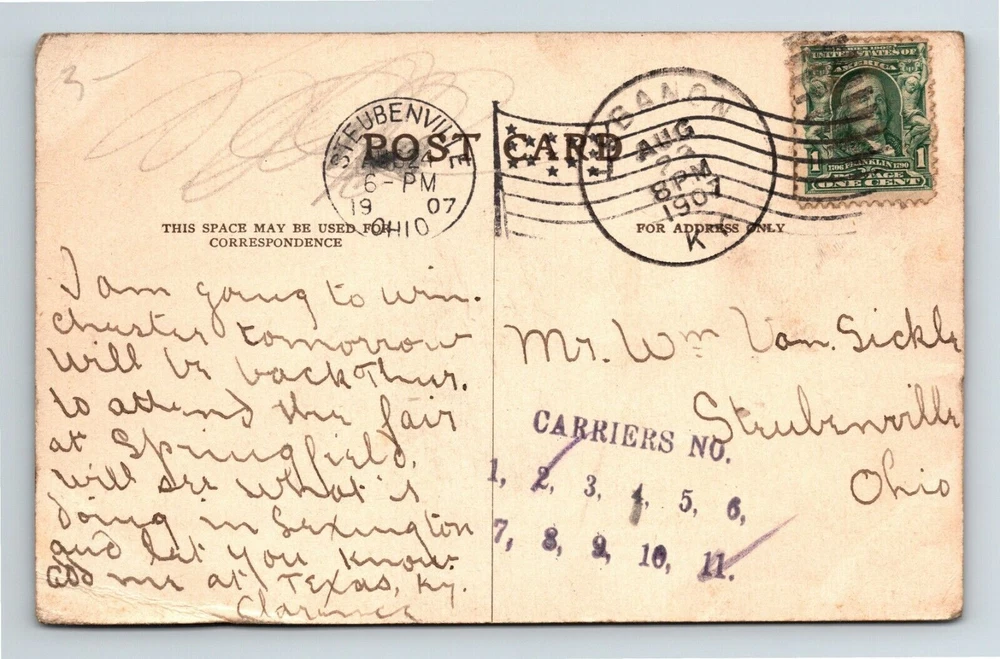 3
STEUBENVILLE
24
6-PM
19 07
OHIO
POST CARD
LEBANON
AUG
8 PM
1907
KY.
SERIES 1902
UNITED STATES OF
AMERICA
1 1
1706 FRANKLIN 1790
POSTAGE
ONE CENT
THIS SPACE MAY BE USED FOR
CORRESPONDENCE
FOR ADDRESS ONLY
I am going to win.
chester tomorrow
will be back Thur.
to attend the fair
at Springfield.
will see what is
doing in Lexington
and let you know.
add me at Texas, Ky.
Clarence
Mr. Wm Van. Sickle
Steubenville
Ohio
CARRIERS NO.
1, 2, 3, 4, 5, 6,
7, 8, 9, 10, 11.